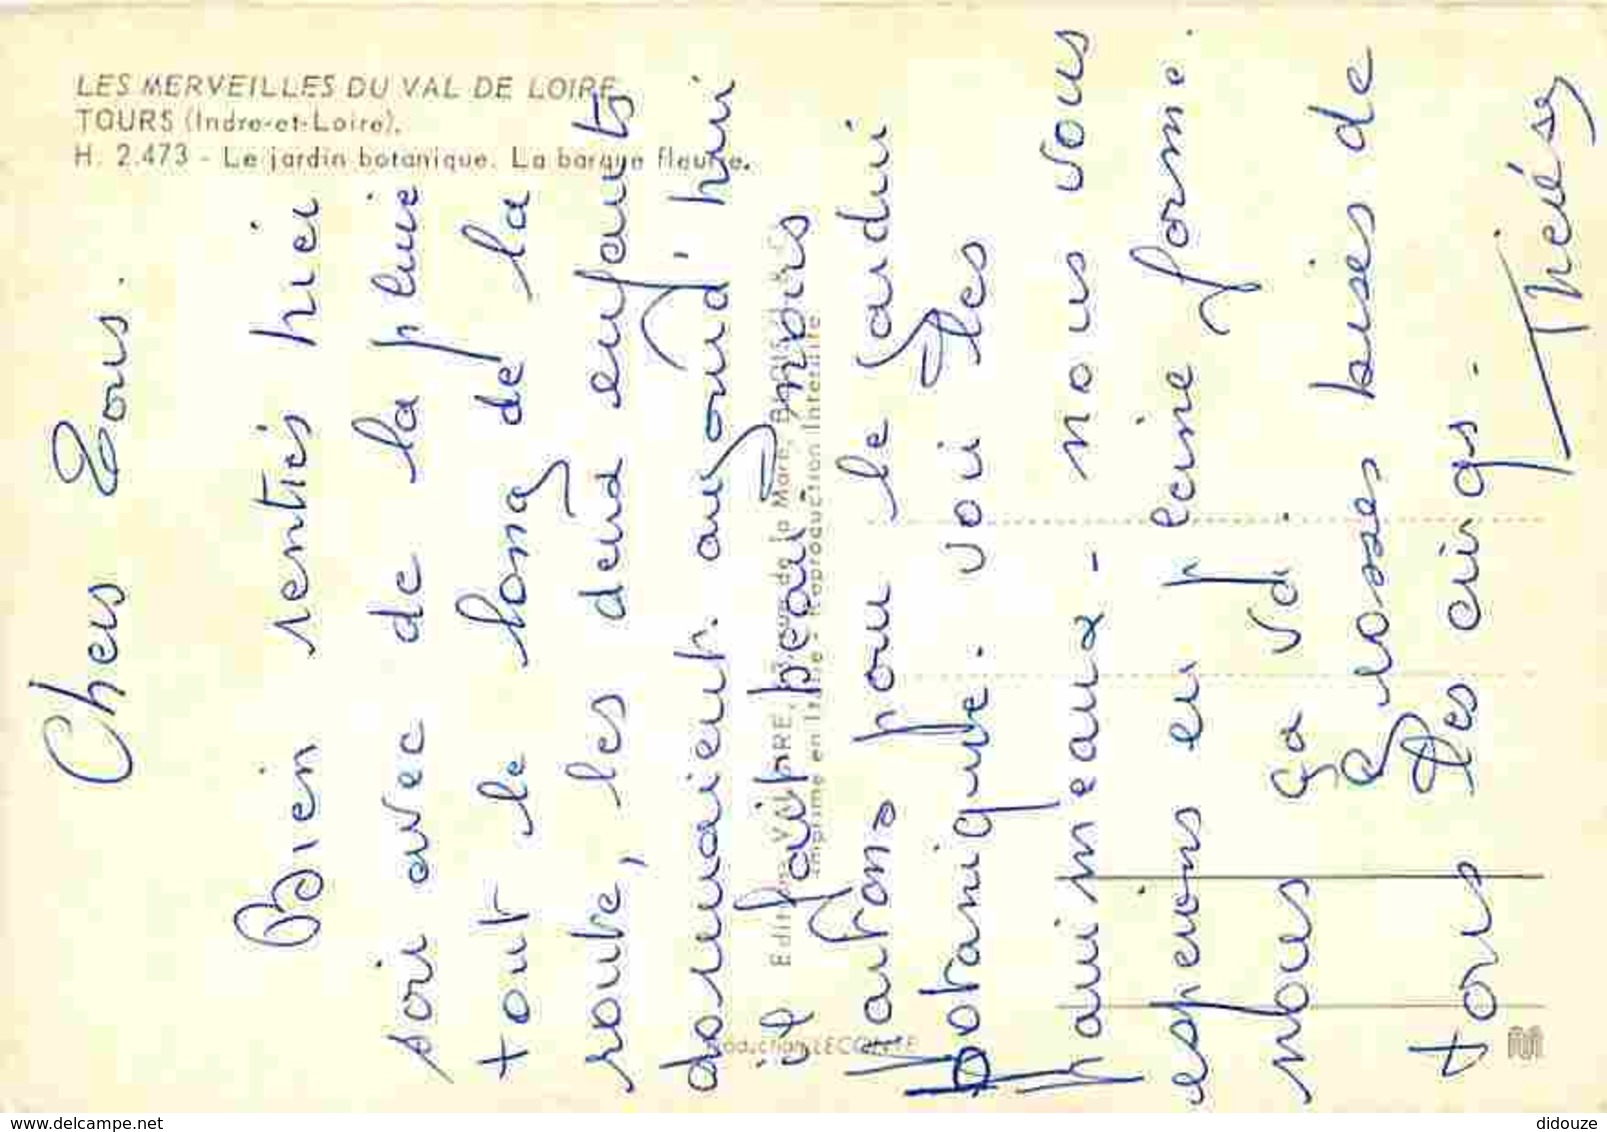 LES MERVEILLES DU VAL DE LOIRE
TOURS (Indre-et-Loire).
H. 2.473 - Le jardin botanique. La barque fleurie.
Chers Tous.
Bien rentrés hier
soir avec de la pluie
tout le long de la
route, les deux enfants
dormaient. aujourd'hui
il fait beau nous
partons pour le jardin
botanique. voir les
animeaux - nous vous
esperons en pleine forme.
nous ça va.
Grosses bises de
tous les cinqs.
Thérésa
Editions VALOIRE, Rue de la Mare, BLOIS
Imprimé en Italie - Reproduction Interdite
production LECONTE
www.delcampe.net
didouze